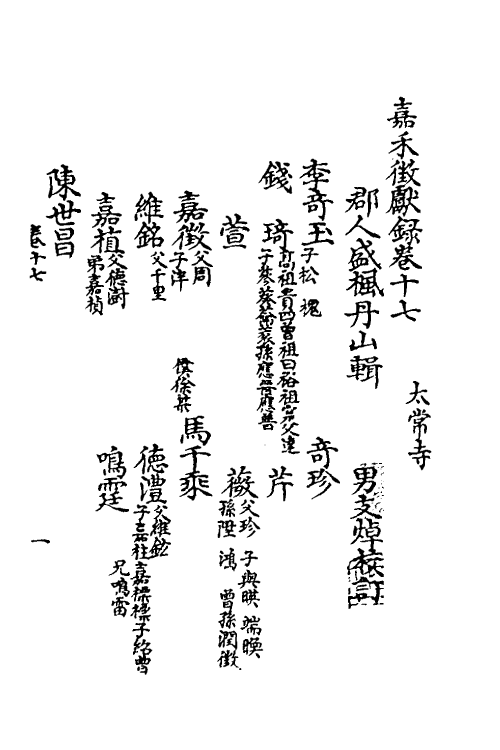 嘉禾徵獻錄卷十七
太常寺
郡人盛楓丹山輯
男支焯校訂
李奇玉 子松 槐
奇珍
錢琦 高祖貴四曾祖曰裕祖 父達
子 葵 孫應 應善
芹
萱
薇 父珍 子與暎 端暎
孫陞 鴻 曾孫潤徵
嘉徵 父周
子津
馬千乘
僕徐榮
維銘 父千里
德澧 父維鉉
子嘉柱嘉標 子紹曾
嘉植 父德澍
弟嘉楨
鳴霆
兄鳴雷
陳世昌
卷十七
一